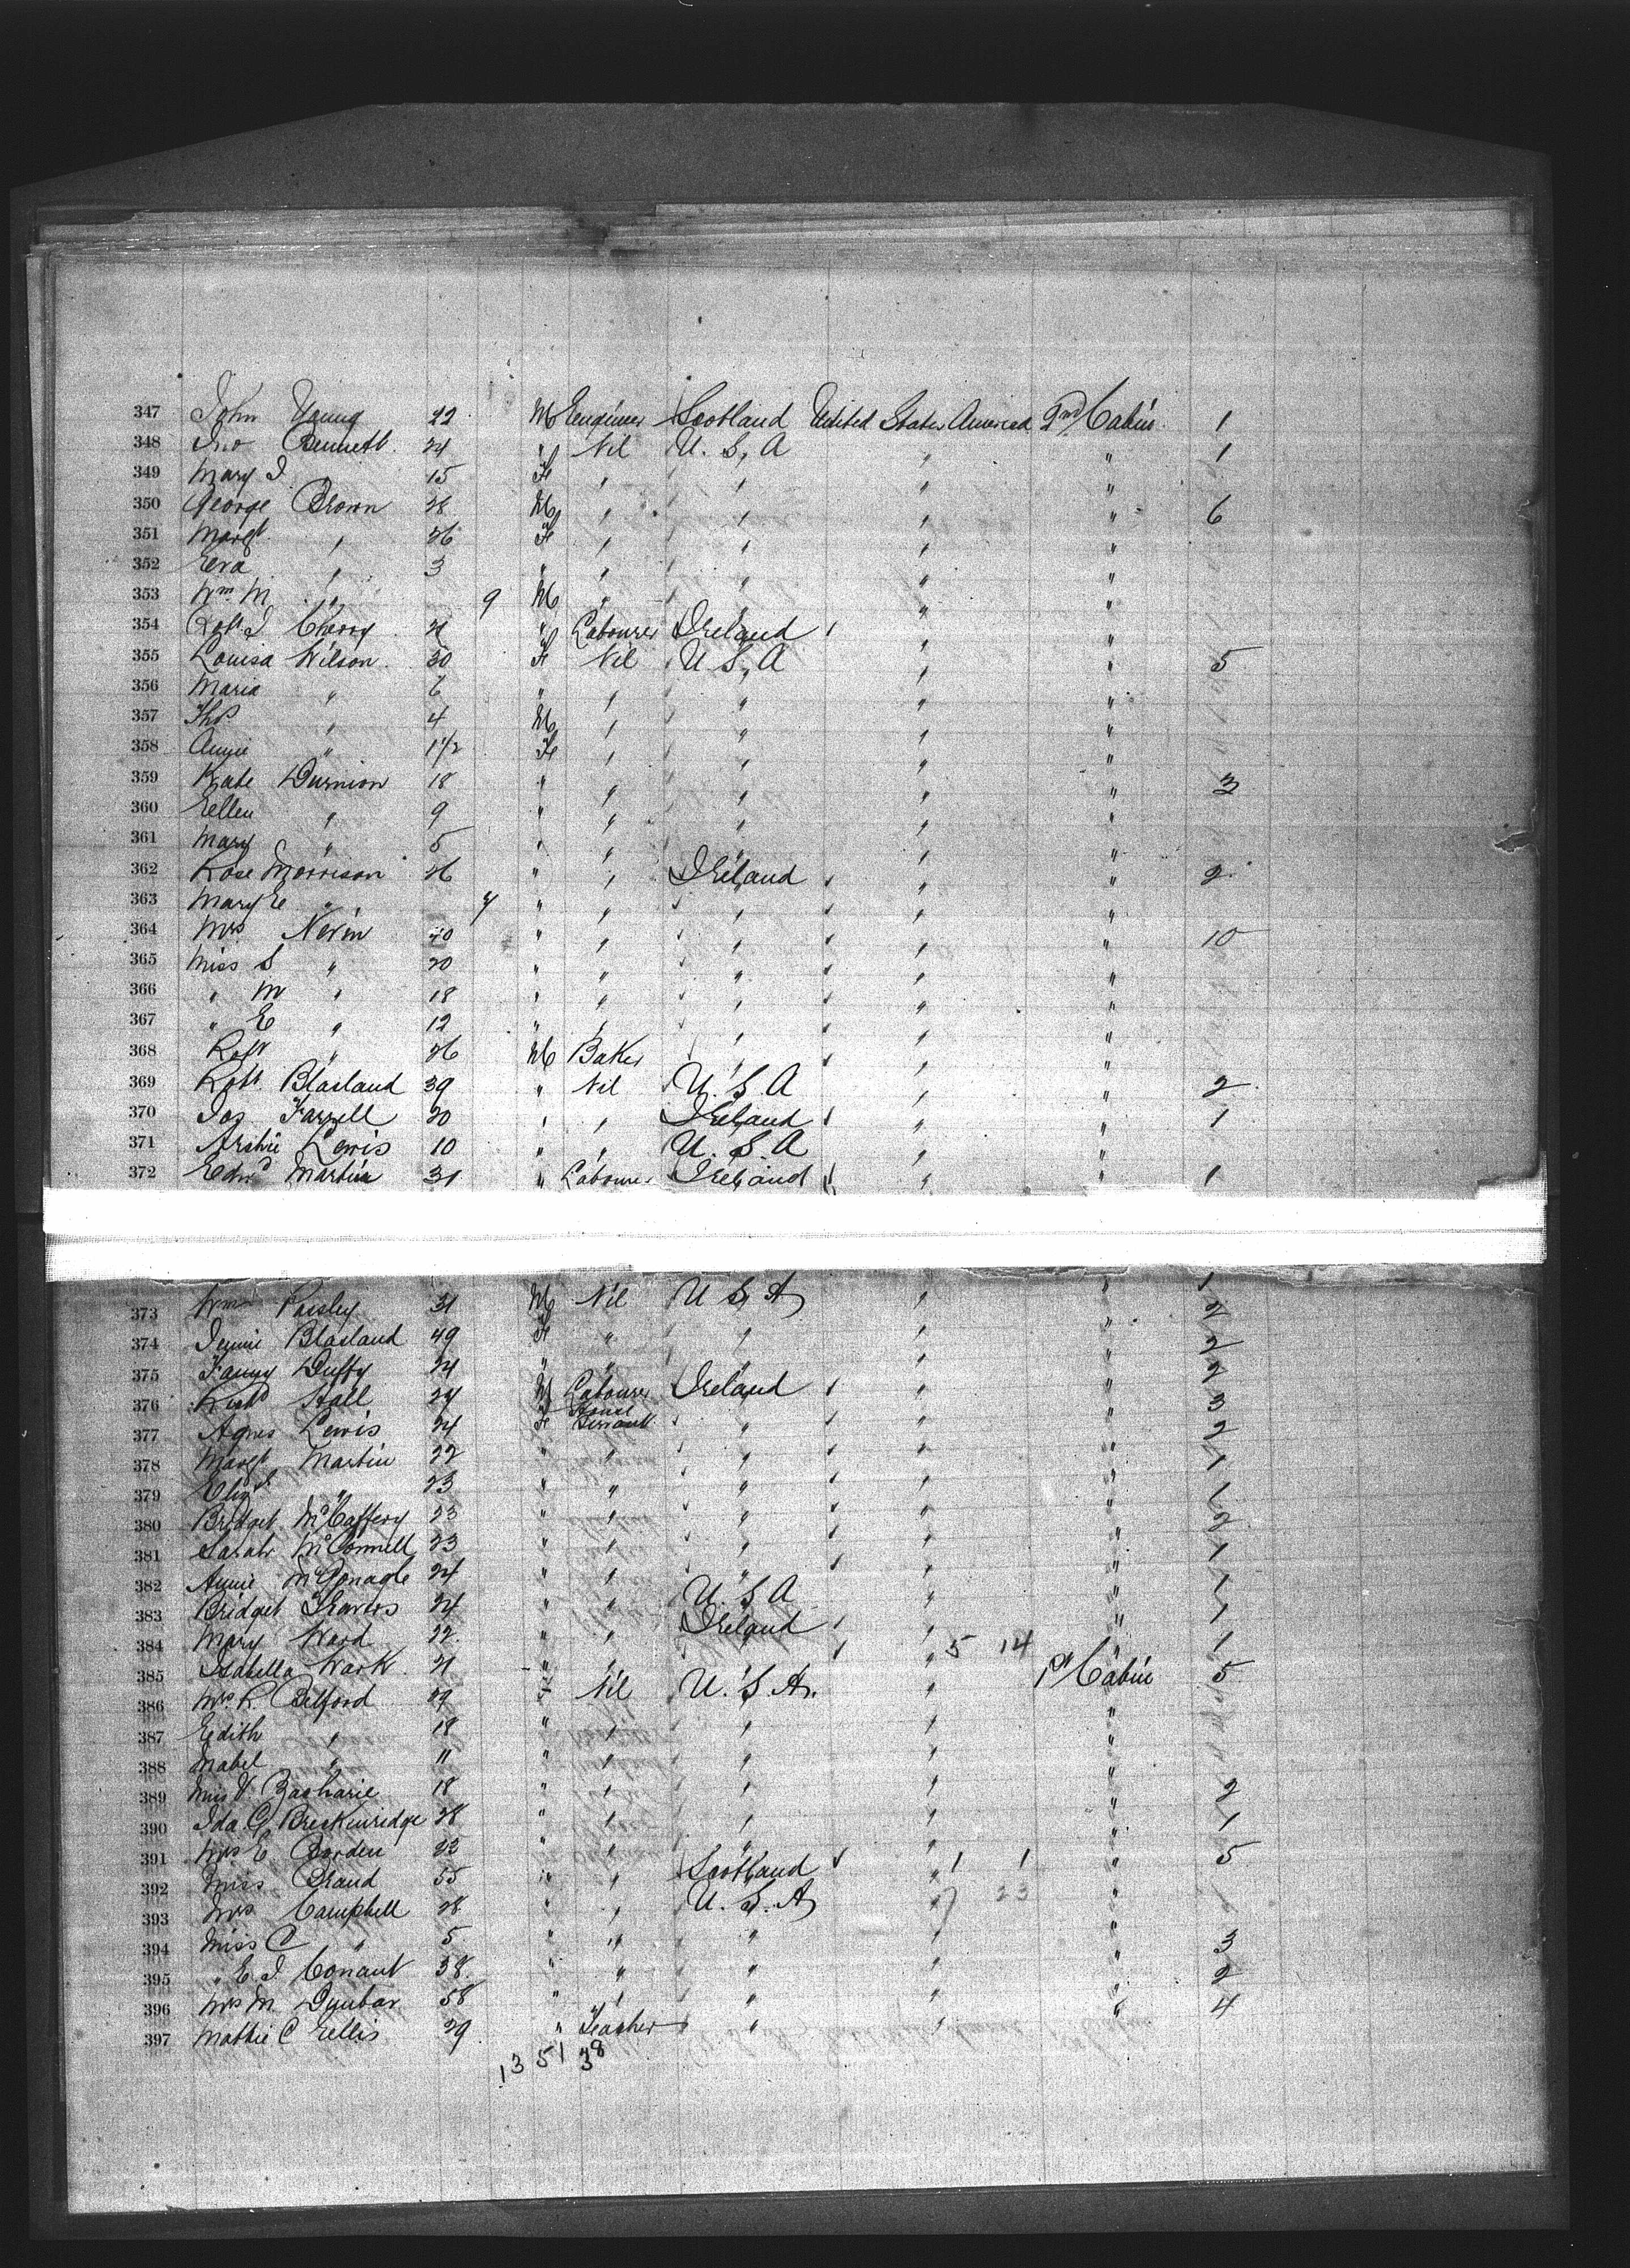 347 John Young 22 M Engineer Scotland United States America 2nd Cabin 1
348 Jno Bennett 24 " Nil U.S.A " " 1
349 Mary J. 15 Fe " " " "
350 George Brown 28 M " " " " 6
351 Margt " 26 Fe " " " "
352 Eva " 3 " " " " "
353 Wm M " 9 M " " " "
354 Robt J Cherry 21 " Labourer Ireland " "
355 Louisa Wilson 30 Fe Nil U S A " " 5
356 Maria " 6 " " " " "
357 Thos " 4 M " " " "
358 Annie " 1 1/2 Fe " " " "
359 Kate Durnion 18 " " " " " 3
360 Ellen " 9 " " " " "
361 Mary " 5 " " " " "
362 Rose Morrison 26 " " Ireland " " 2
363 Mary E " " " " " "
364 Mrs Nevin 40 " " " " " 10
365 Miss S " 20 " " " " "
366 " M " 18 " " " " "
367 " E " 12 " " " " "
368 Robt " 26 M Baker " " "
369 Robt Blasland 39 " Nil U.S A " " 2
370 Jos Farrell 20 " " Ireland " " 1
371 Archie Lewis 10 " " U.S.A " "
372 Edwd Martin 31 " Labourer Ireland " " 1
373 Wm Paisley 31 M Nil U S A " " 1
374 Jennie Blasland 49 Fe " " " " 2
375 Fanny Duffy 24 " " " " " 2
376 Richd Hall 24 M Labourer Ireland " " 2
377 Agnes Lewis 24 Fe House Servant " " " 3
378 Margt Martin 22 " " " " " 2
379 Elizth " 23 " " " " " 1
380 Bridget McCaffery 23 " " " " " 1
381 Sarah McConnell 23 " " " " " 2
382 Annie McGonagle 24 " " " " " 1
383 Bridget Travers 24 " " U.S A " " 1
384 Mary Ward 22 " " Ireland " " 1
385 Isabella Wark 21 " " " " 5 14 " 1
386 Mrs R. Belford 29 " Nil U.S.A. " 1st Cabin 5
387 Edith " 18 " " " " "
388 Mabel " 11 " " " " "
389 Miss V. Zacharie 18 " " " " "
390 Ida C. Breckinridge 28 " " " " " 2
391 Mrs E Borden 23 " " " " " 1
392 Miss Brand 55 " " Scotland " 1 1 " 5
393 Mrs Campbell 28 " " U.S.A " 7 23 "
394 Miss C " 5 " " " " "
395 " E.J. Conant 38 " " " " " 3
396 Mrs M. Dunbar 58 " " " " " 2
397 Mattie C Ellis 29 " Teacher " " " 4
13 51 38